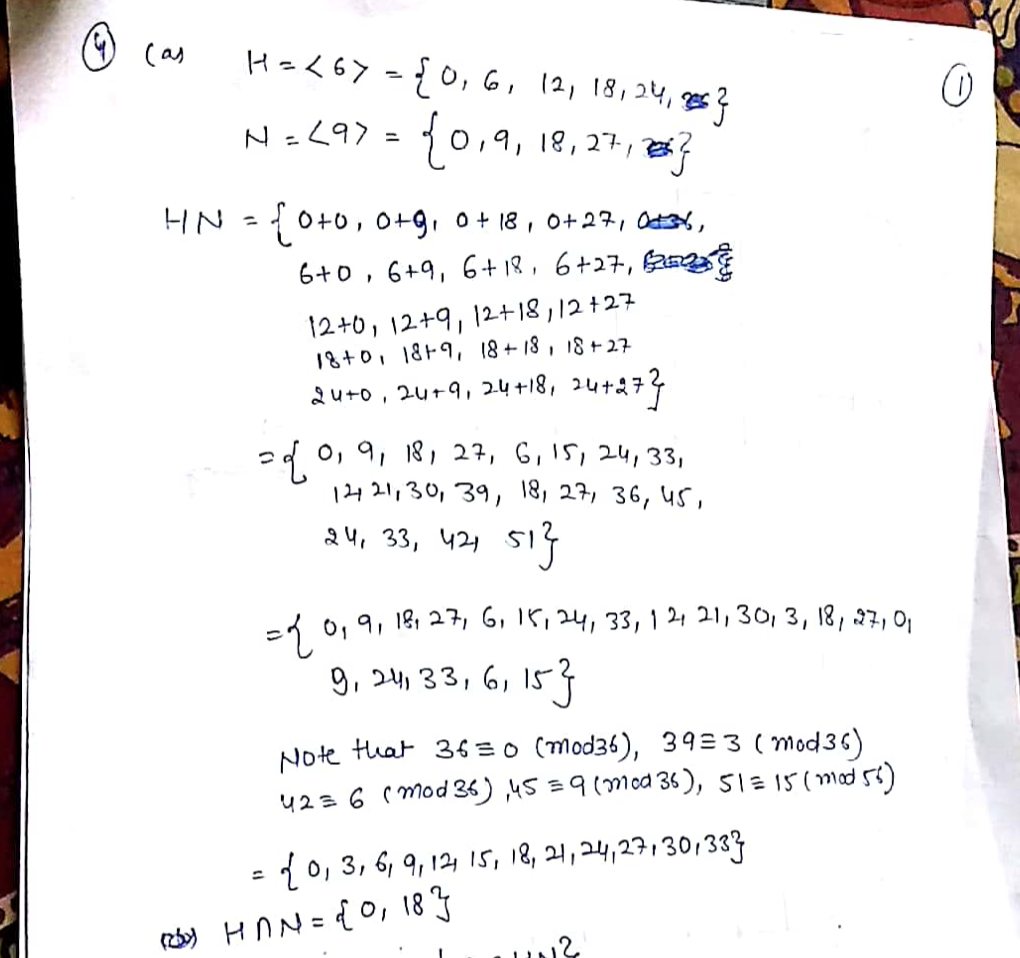 ④ (a) H = <6> = {0, 6, 12, 18, 24, }
①
N = <9> = {0, 9, 18, 27, }
HN = {0+0, 0+9, 0+18, 0+27,
6+0, 6+9, 6+18, 6+27,
12+0, 12+9, 12+18, 12+27
18+0, 18+9, 18+18, 18+27
24+0, 24+9, 24+18, 24+27}
= {0, 9, 18, 27, 6, 15, 24, 33,
12, 21, 30, 39, 18, 27, 36, 45,
24, 33, 42, 51}
= {0, 9, 18, 27, 6, 15, 24, 33, 12, 21, 30, 3, 18, 27, 0,
9, 24, 33, 6, 15}
Note that 36 ≡ 0 (mod36), 39 ≡ 3 (mod36)
42 ≡ 6 (mod36), 45 ≡ 9 (mod 36), 51 ≡ 15 (mod 56)
= {0, 3, 6, 9, 12, 15, 18, 21, 24, 27, 30, 33}
(b) H∩N = {0, 18}